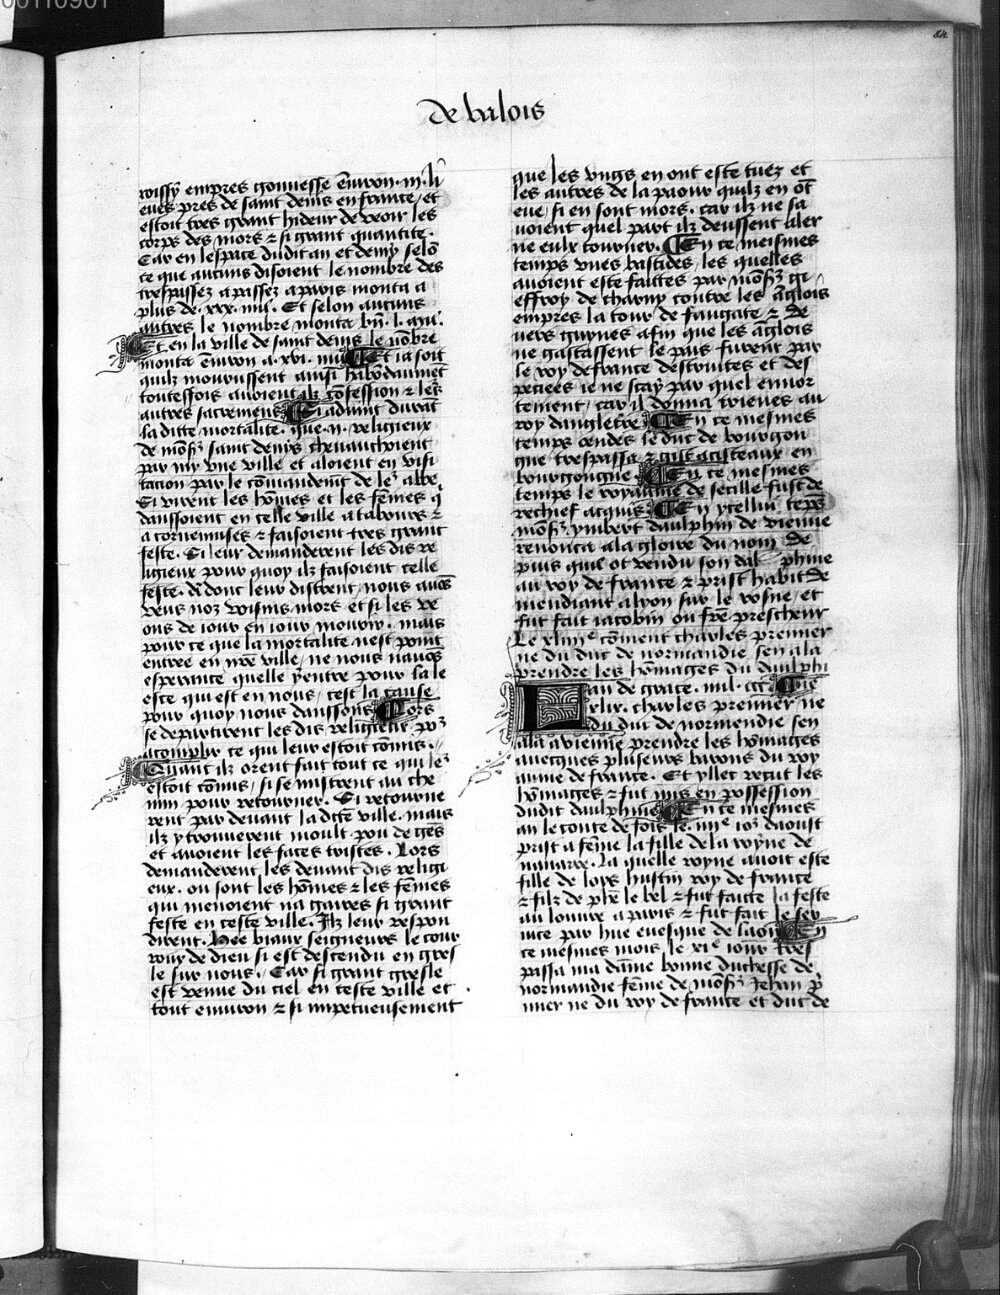 00110901
84.
de valois
roissy empres gonnesse enuiron .iii. li
eues pres de saint denis en france / et
estoit tres grant hideur de veoir les
corps des mors ⁊ si grant quantite .
Car en lespace dudit an et demy selō
ce que aucuns disoient le nombre des
trespassez apassez a paris monta a
plus de . xxx . mil . Et selon aucuns
autres le nombre monta . l . mil .
Et en la ville de saint denis le nōbre
monta ēuiron a . xvi . mil ¶ Et ia soit
quilz mourussent ainsi habōdaumēt
touteffois auoient ilz cōfession ⁊ les
autres sacremens ¶ Si aduint durāt
la ditte mortalite . que .ii. religieux
de mōsr saint denys cheuauchoient
par my vne ville et aloient en visi
tacion par le cōmandemt de le abbe .
Si virent les hōmes et les fēmes q̄
danssoient en celle ville a tabours ⁊
a cornemuses ⁊ faisoient tres grant
feste . Si leur demanderent les dis re
ligieux pour quoy ilz faisoient celle
feste . a dont leur distrent / nous auōs
veus noz voisins mors et si les ve
ons de iour en iour mourir . mais
pour ce que la mortalite nest point
entree en nrē ville / ne nous nauōs
esperance quelle y entre pour la le
esce qui est en nous / cest la cause
pour quoy nous danssons ¶ Lors
se departirent les dis religieux por
acomplir ce qui leur estoit cōmis .
Quant ilz orent fait tout ce qui lez
estoit cōmis / si se mistrent au che
min pour retourner . Si retourne
rent par deuant la ditte ville . mais
ilz y trouuerent moult pou de gēs
et auoient les faces tristes . Lors
demanderent les deuant dis religi
eux . ou sont les hōmes ⁊ les fēmes
qui menoient na gaires si grant
feste en ceste ville . Ilz leur respon
dirent . Hee biaux seigneurs le cour
roux de dieu si est descendu en gres
le sur nous . Car si grant gresle
est venue du ciel en ceste ville et
tout enuiron ⁊ si impetueusement
que les vngs en ont este tuez et
les autres de la paour quilz en ōt
eue / si en sont mors . car ilz ne sa
uoient quel part ilz deussent aler
ne eulx tourner . ¶ En ce meismes
temps vnes bastides / les quelles
auoient este faittes par mōsr gi
effroy de charny contre les āglois
empres la tour de faugate ⁊ de
uers guynes afin que les āglois
ne gastassent le pais furent par
le roy de france destruites et des
peciees ie ne scay par quel enuor
tement / car il donna trieues au
roy dangleterre ¶ En ce mesmes
temps eendes le duc de bourgon
gne trespassa ⁊ gist a cisteaux en
bourgongne ¶ En ce mesmes
temps le royaume de secille fust de
rechief acquis ¶ En ycellui tēps
mōsr ymbert daulphin de vienne
renonca a la gloire du nom de
puis quil ot vendu son dalphine
au roy de france ⁊ prist habit de
mendiant a lyon sur le rosne / et
fut fait iacobin ou frē prescheur
Le xliiiie cōment charles premier
ne du duc de normandie sen ala
prendre les hōmages du daulphi
Lan de grace . mil . ccc ¶ ne
xlix . charles premier ne
du duc de normendie sen
ala a vienne prendre les hōmages
auecques pluseurs barons du roy
aume de france . Et yllec recut les
hōmages ⁊ fut mis en possession
dudit daulphine ¶ En ce mesmes
an le conte de foix le .iiiie ior daoust
prist a fēme la fille de la royne de
nauarre . la quelle royne auoit este
fille de loys hustin roy de france
⁊ filz de phē le bel ⁊ fut faitte la feste
au louure a paris ⁊ fut fait le ser
uice par hue euesque de laon ¶ En
ce mesmes mois le xie iour tres
passa ma dāme bonne duchesse de
normandie fēme de mōsr Iehan p̄
mier ne du roy de france et duc de